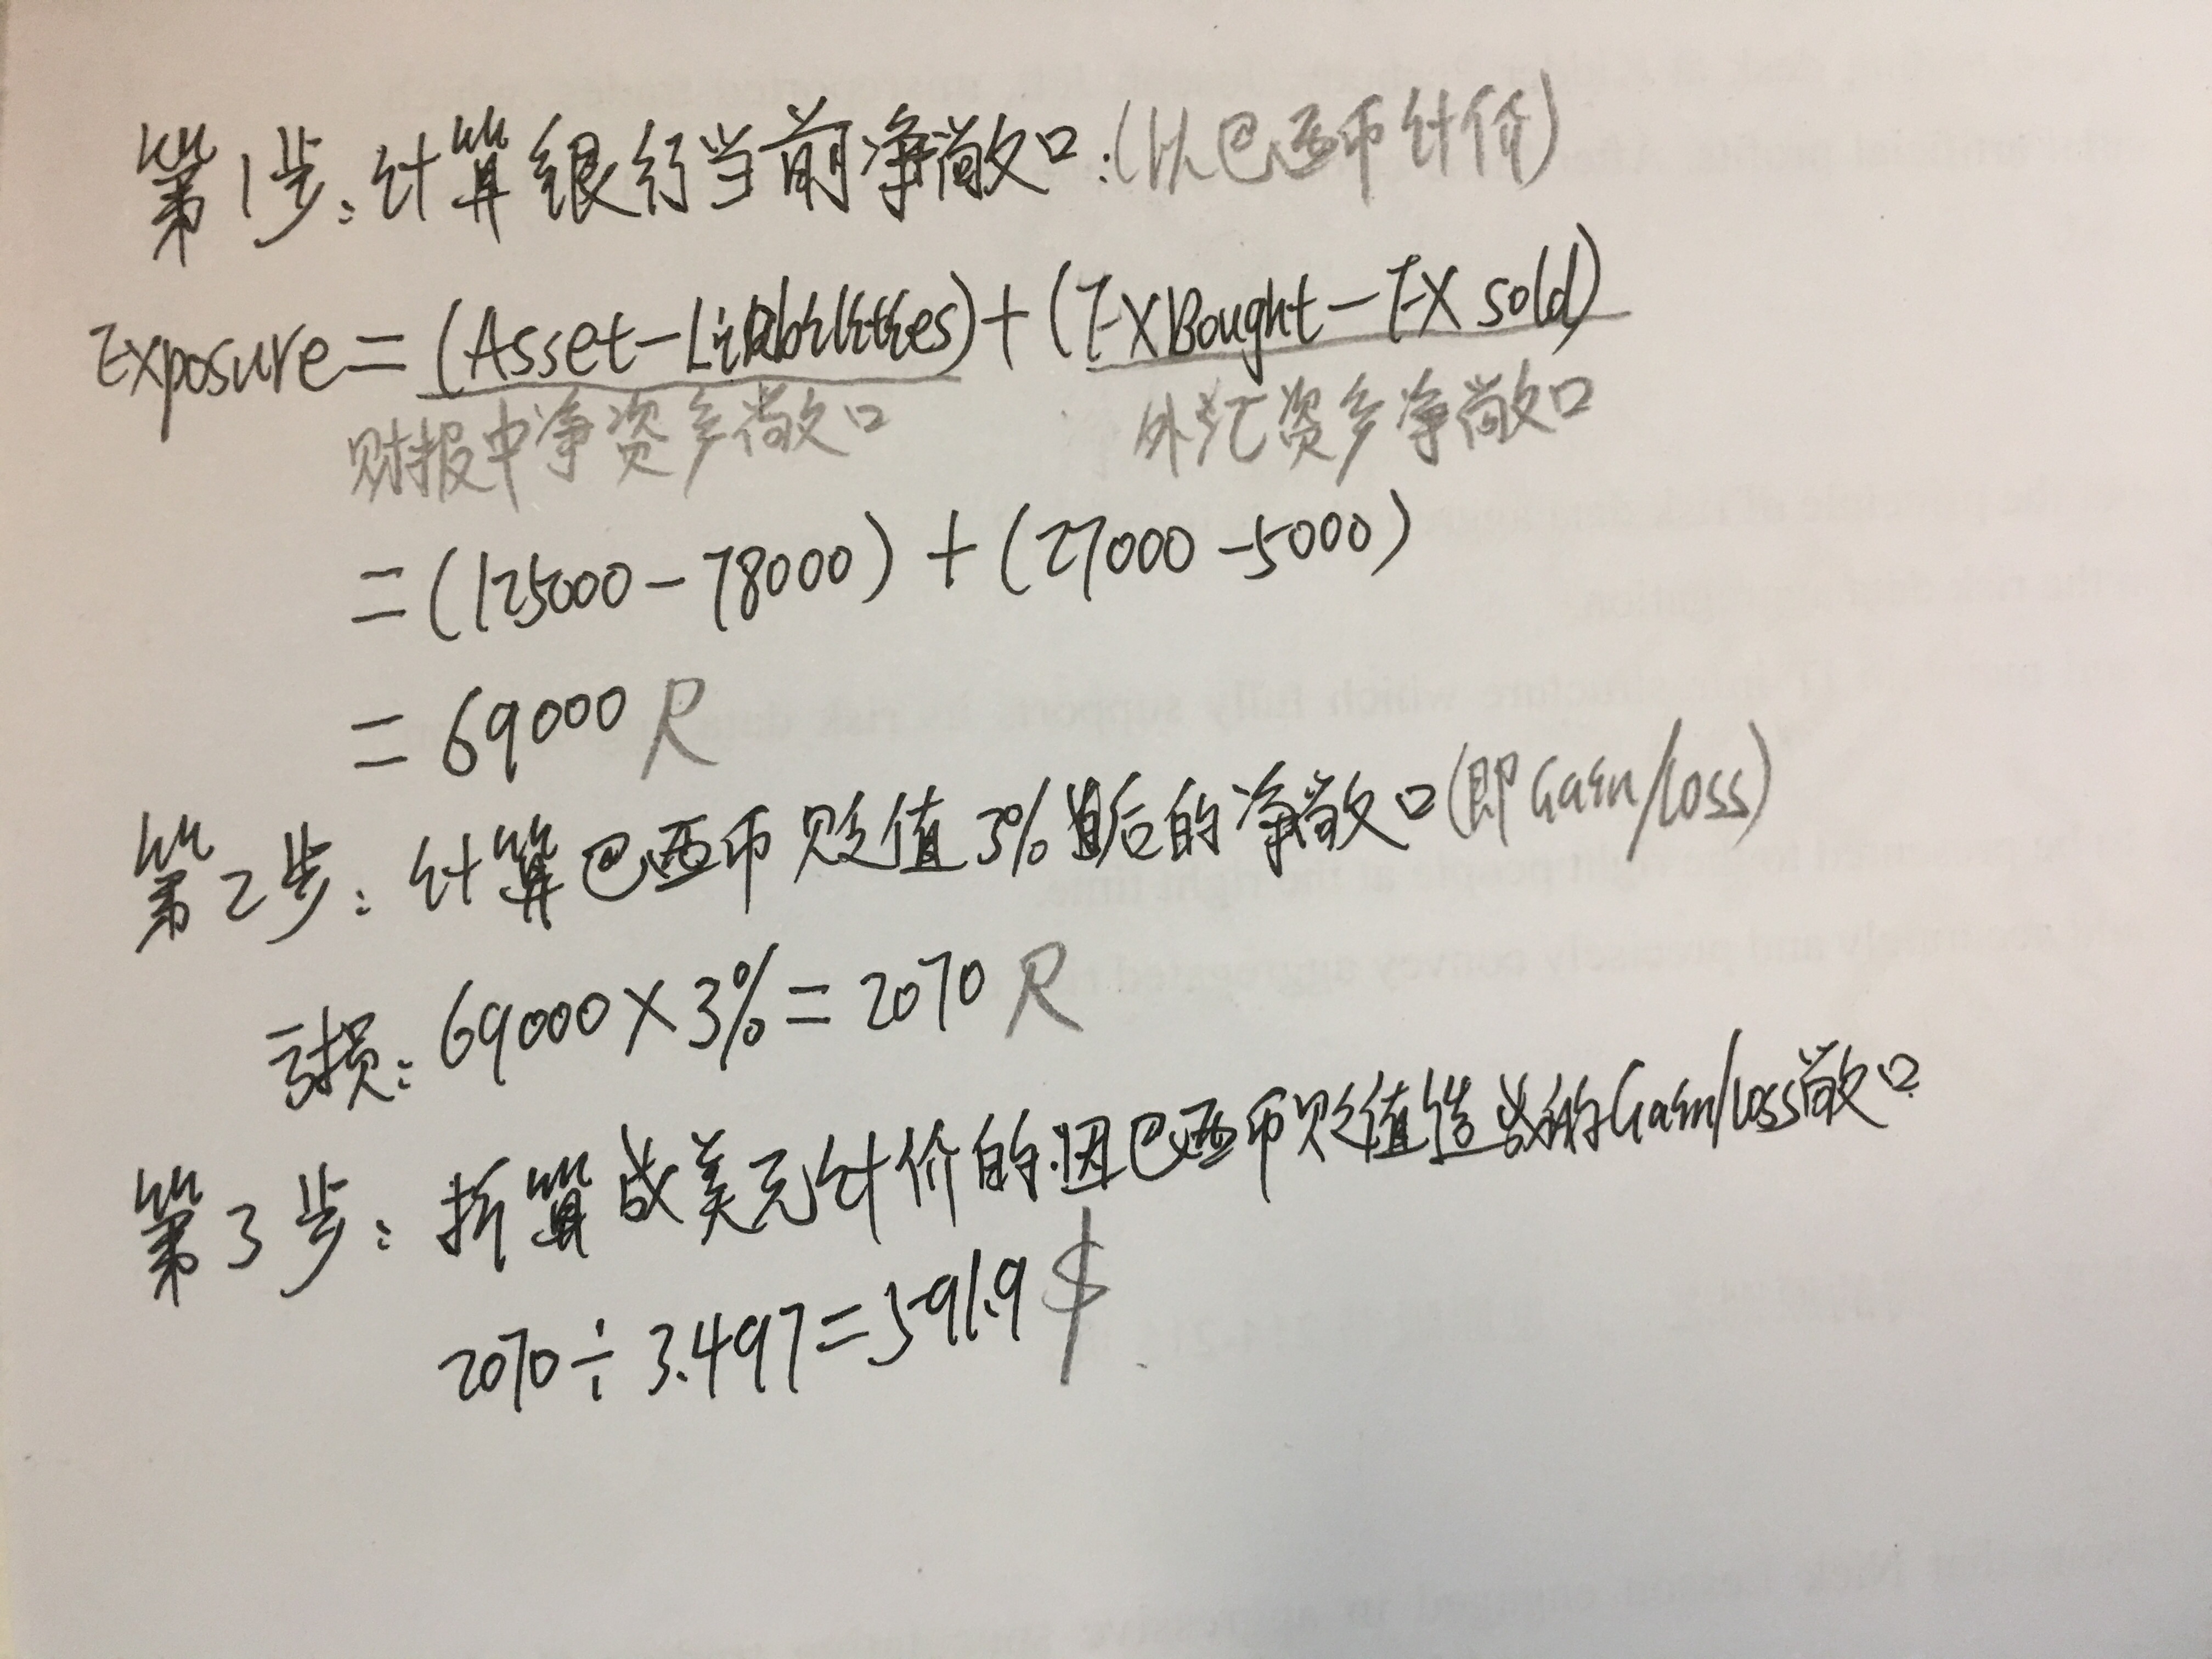 第1步：计算银行当前净敞口：(以巴西币计价)
Exposure = (Asset-Liabilities) + (FX Bought - FX sold)
财报中净资多敞口 外汇资多净敞口
= (125000 - 78000) + (27000 - 5000)
= 69000 R
第2步：计算巴西币贬值3%后的净敞口(即Gain/loss)
亏损：69000 × 3% = 2070 R
第3步：折算成美元计价的因巴西币贬值造成的Gain/loss敞口
2070 ÷ 3.497 = 591.9 $